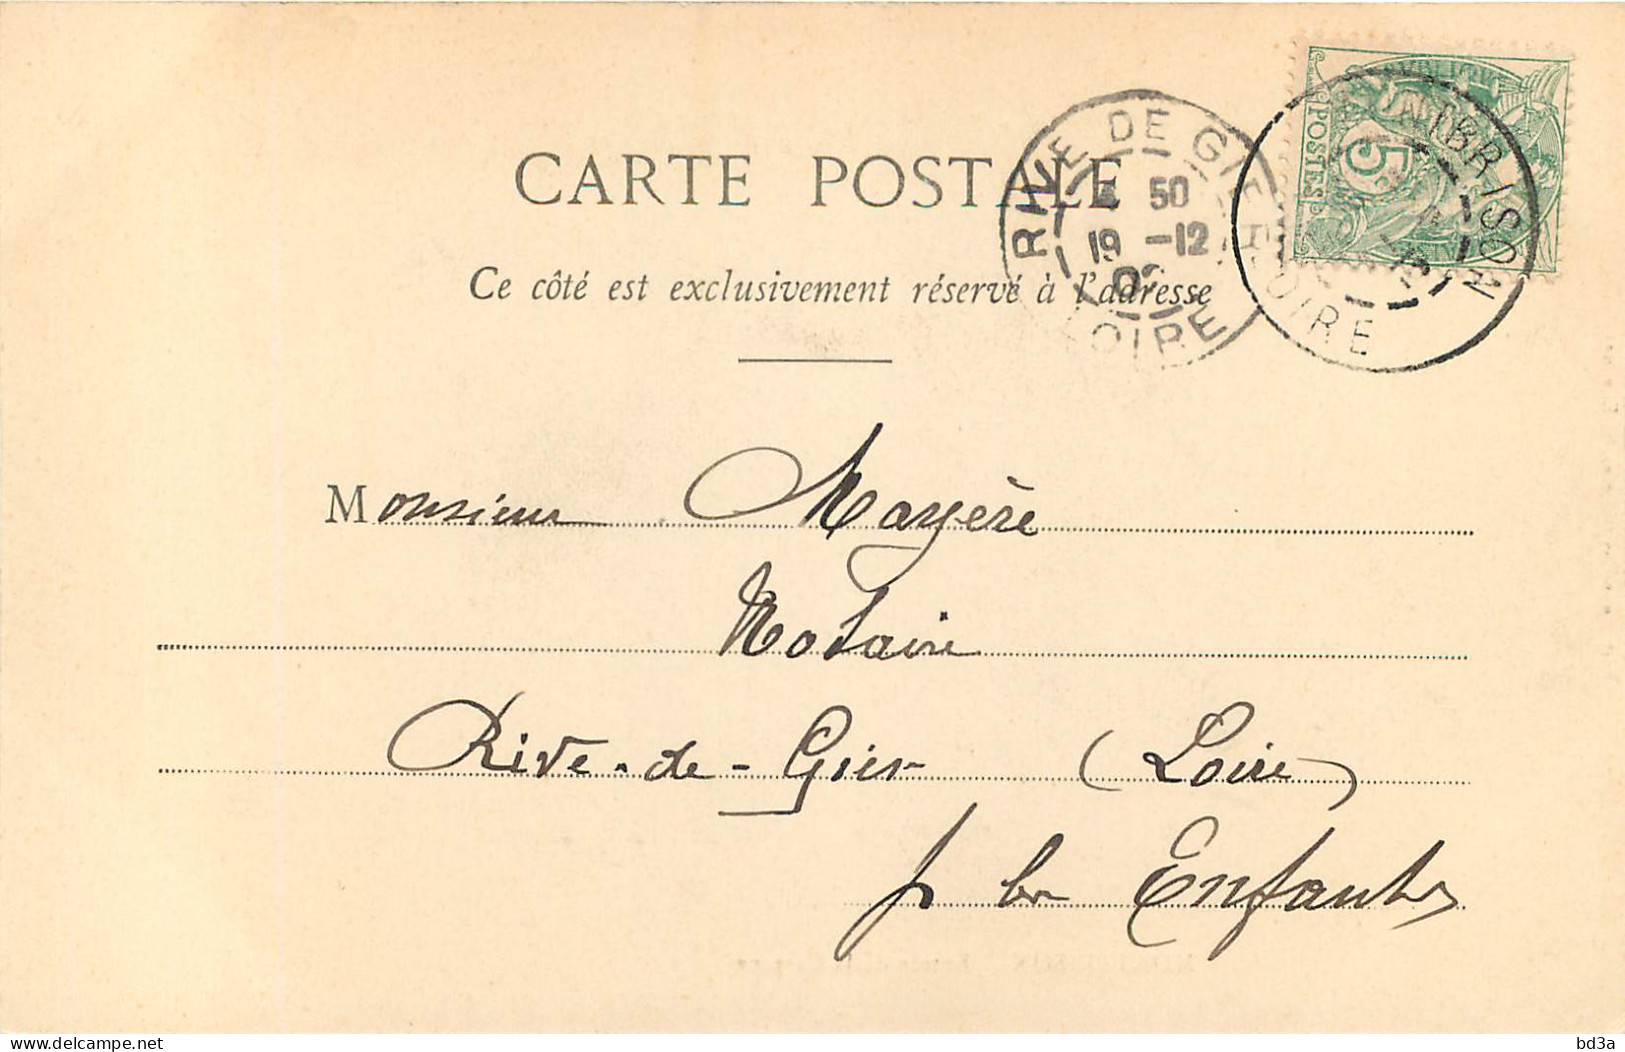 CARTE POSTALE
Ce côté est exclusivement réservé à l'adresse
RIVE DE GIER
50
19 -12
LOIRE
MONTBRISON
LOIRE
POSTES
5
Monsieur Mayère
Notaire
Rive-de-Gier (Loire)
p les Enfants
bd3a